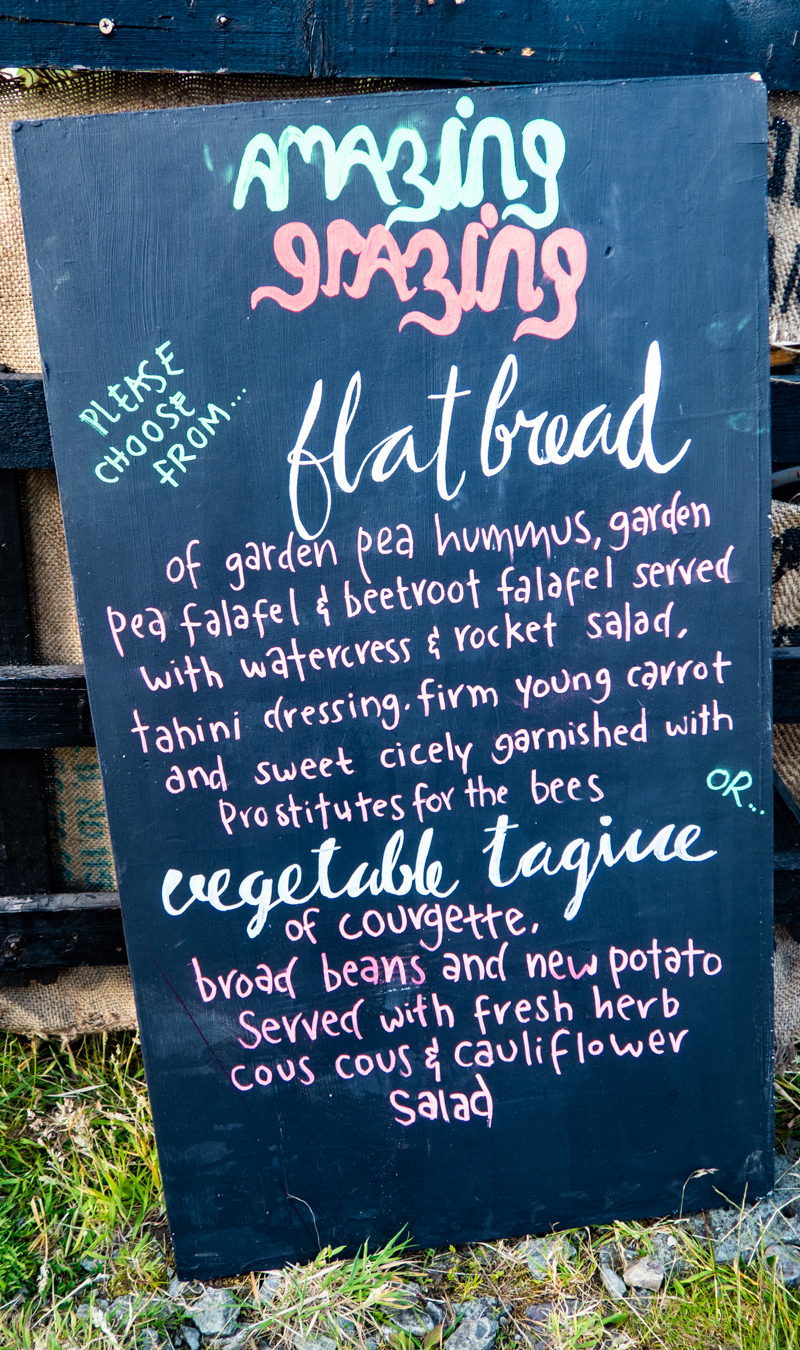 AMAzing
grAzing
PLEASE
CHOOSE
FROM...
flatbread
of garden pea hummus, garden
pea falafel & beetroot falafel served
with watercress & rocket salad,
tahini dressing. firm young carrot
and sweet cicely garnished with
Prostitutes for the bees
OR...
vegetable tagine
of courgette,
broad beans and new potato
Served with fresh herb
cous cous & cauliflower
Salad